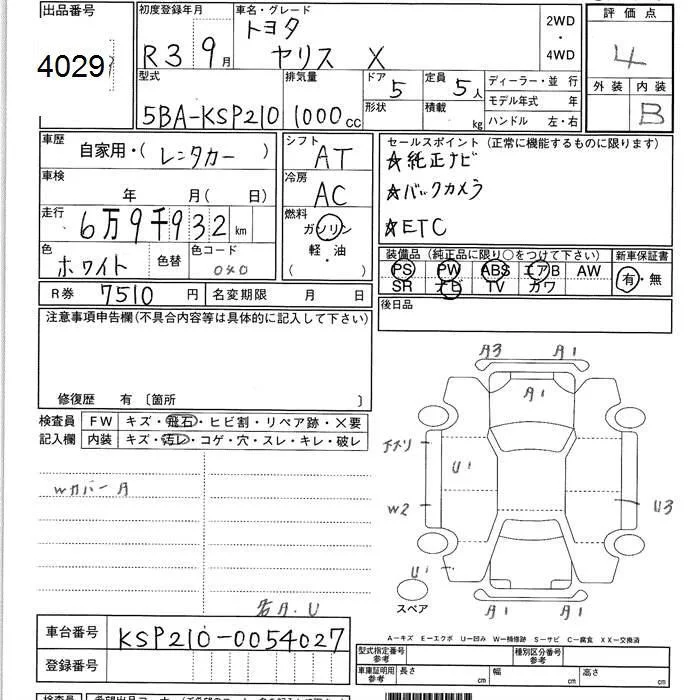 出品番号
4029
初度登録年月
R3 9月
車名・グレード
トヨタ
ヤリス X
2WD
・
4WD
評価点
4
外装 内装
B
型式
5BA-KSP210
排気量
1000cc
ドア
5
形状
定員
5人
積載
kg
ディーラー・並 行
モデル年式 年
ハンドル 左・右
車歴
自家用・(レンタカー)
車検
年 月( 日)
走行
6万9千932km
色
ホワイト
色替
色コード
040
シフト
AT
冷房
AC
燃料
ガソリン
軽・油
( )
セールスポイント(正常に機能するものに限ります)
☆純正ナビ
☆バックカメラ
☆ETC
装備品(純正品に限り○をつけて下さい)
PS PW ABS エアB AW
SR ナビ TV カワ
新車保証書
有・無
R券 7510円
名変期限 月 日
後日品
注意事項申告欄(不具合内容等は具体的に記入して下さい)
修復歴 有 〔箇所 〕
検査員
記入欄
FW キズ・飛石・ヒビ割・リペア跡・×要
内装 キズ・汚レ・コゲ・穴・スレ・キレ・破レ
Wカバー
A3 A1
A1
U1
W2
U3
U1
スペア
A1 A1
A. U
A−キズ E−エクボ U−凹み W−補修跡 S−サビ C−腐食 XX−交換済
車台番号
KSP210-0054027
登録番号
型式指定番号
参考
種別区分番号
参考
車庫証明用
参考
長さ cm
幅 cm
高さ cm